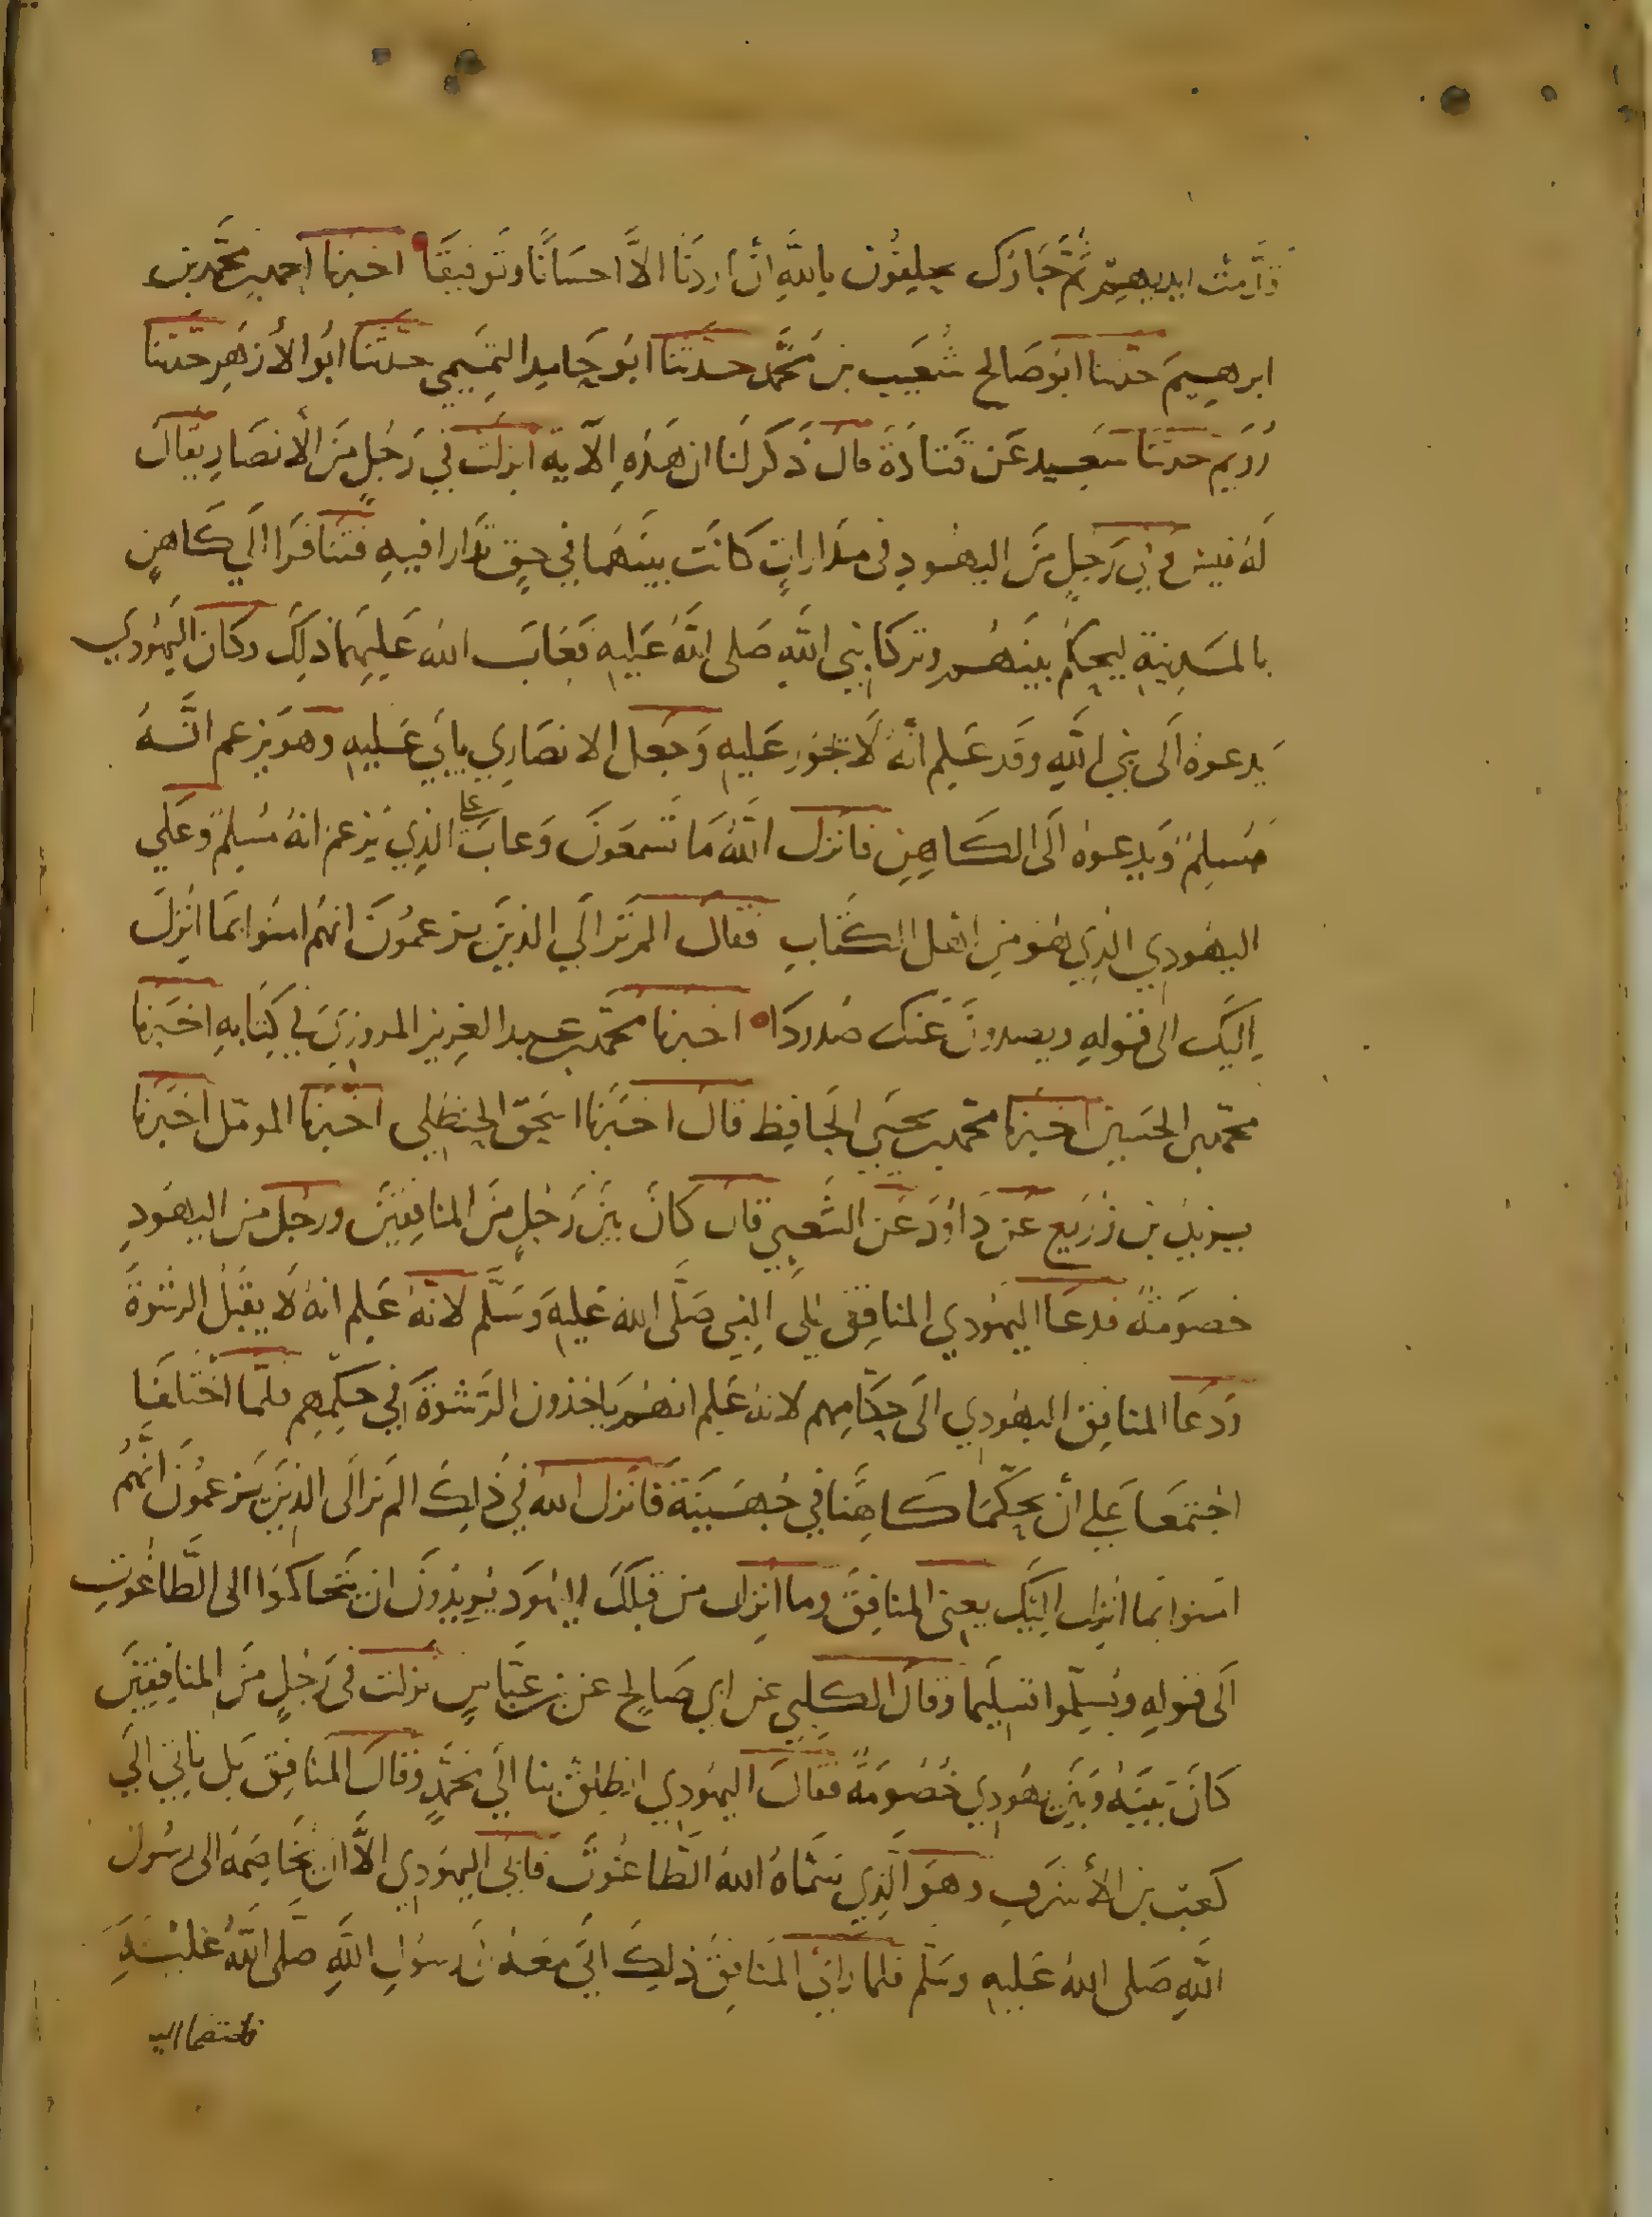 قدمت ايديهم ثم جاؤك يحلفون بالله ان اردنا الا احسانا وتوفيقا اخبرنا احمد بن محمد بن
ابرهيم حدثنا ابو صالح شعيب بن محمد حدثنا ابو حامد التميمي حدثنا ابو الأزهر حدثنا
رويم حدثنا سعيد عن قتادة قال ذكر لنا ان هذه الآية انزلت في رجل من الأنصار يقال
له قيس وفي رجل من اليهود في مدارات كانت بينهما في حق تدارا فيه فتنافرا الي كاهن
بالمدينة ليحكم بينهم وتركا نبي الله صلى الله عليه فعاب الله عليهما ذلك وكان اليهودي
يدعوه الى نبي الله وقد علم أنه لا يجور عليه وجعل الانصاري يابي عليه وهو يزعم انه
مسلم ويدعوه الى الكاهن فانزل الله ما تسمعون وعاب على الذي يزعم انه مسلم وعلي
اليهودي الذي هو من اهل الكتاب فقال الم تر الي الذين يزعمون انهم امنوا بما انزل
اليك الى قوله ويصدون عنك صدودا اخبرنا محمد بن عبد العزيز المروزي في كتابه اخبرنا
محمد بن الحسين اخبرنا محمد بن يحيي الحافظ قال اخبرنا اسحق الحنظلي اخبرنا المومل اخبرنا
يزيد بن زريع عن داود عن الشعبي قال كان بين رجل من المنافقين ورجل من اليهود
خصومة فدعا اليهودي المنافق الى النبي صلى الله عليه وسلم لانه علم انه لا يقبل الرشوة
ودعا المنافق اليهودي الى حكامهم لانه علم انهم ياخذون الرشوة في حكمهم فلما اختلفا
اجتمعا علي أن يحكما كاهنا في جهينة فانزل الله في ذلك الم تر الى الذين يزعمون انهم
امنوا بما انزل اليك يعنى المنافق وما انزل من قبلك اليهود يريدون ان يتحاكموا الى الطاغوت
الى قوله ويسلموا تسليما وقال الكلبي عن ابي صالح عن بن عباس نزلت في رجل من المنافقين
كان بينه وبين يهودي خصومة فقال اليهودي انطلق بنا الي محمد وقال المنافق بل ناتي الي
كعب بن الأشرف وهو الذي سماه الله الطاغوت فابى اليهودي الا ان يخاصمه الى رسول
الله صلى الله عليه وسلم فلما راي المنافق ذلك اتى معه الى رسول الله صلى الله عليه
فاختصما اليه